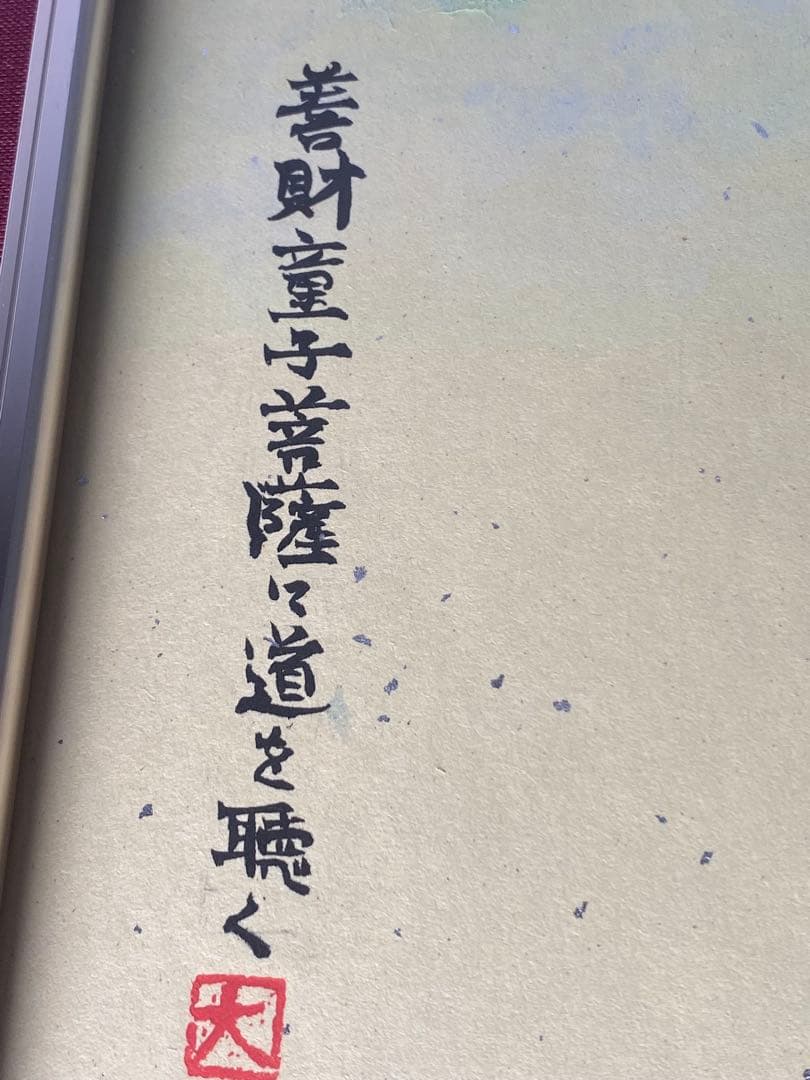 善財童子菩薩に道を聴く
大